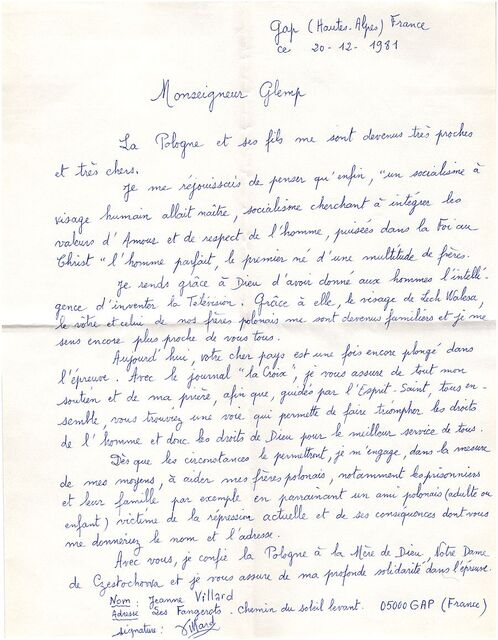 Gap (Hautes-Alpes) France
ce 20-12-1981
Monseigneur Glemp
La Pologne et ses fils me sont devenus très proches
et très chers.
Je me réjouissais de penser qu'enfin, "un socialisme à
visage humain allait naître, socialisme cherchant à intégrer les
valeurs d'Amour et de respect de l'homme, puisées dans la Foi au
Christ "l'homme parfait, le premier né d'une multitude de frères.
Je rends grâce à Dieu d'avoir donné aux hommes l'intelli-
gence d'inventer la Télévision. Grâce à elle, le visage de Lech Walesa,
le vôtre et celui de nos frères polonais me sont devenus familiers et je me
sens encore plus proche de vous tous.
Aujourd'hui, votre cher pays est une fois encore plongé dans
l'épreuve. Avec le journal "la Croix", je vous assure de tout mon
soutien et de ma prière, afin que, guidés par l'Esprit-Saint, tous en-
semble, vous trouviez une voie qui permette de faire triompher les droits
de l'homme et donc les droits de Dieu pour le meilleur service de tous.
Dès que les circonstances le permettront, je m'engage, dans la mesure
de mes moyens, à aider mes frères polonais, notamment les prisonniers
et leur famille par exemple en parrainant un ami polonais (adulte ou
enfant) victime de la répression actuelle et de ses conséquences dont vous
me donneriez le nom et l'adresse.
Avec vous, je confie la Pologne à la Mère de Dieu, Notre Dame
de Czestochowa et je vous assure de ma profonde solidarité dans l'épreuve.
Nom : Jeanne Villard
Adresse Les Fangerots. Chemin du soleil levant. 05000 GAP (France)
Signature : Villard